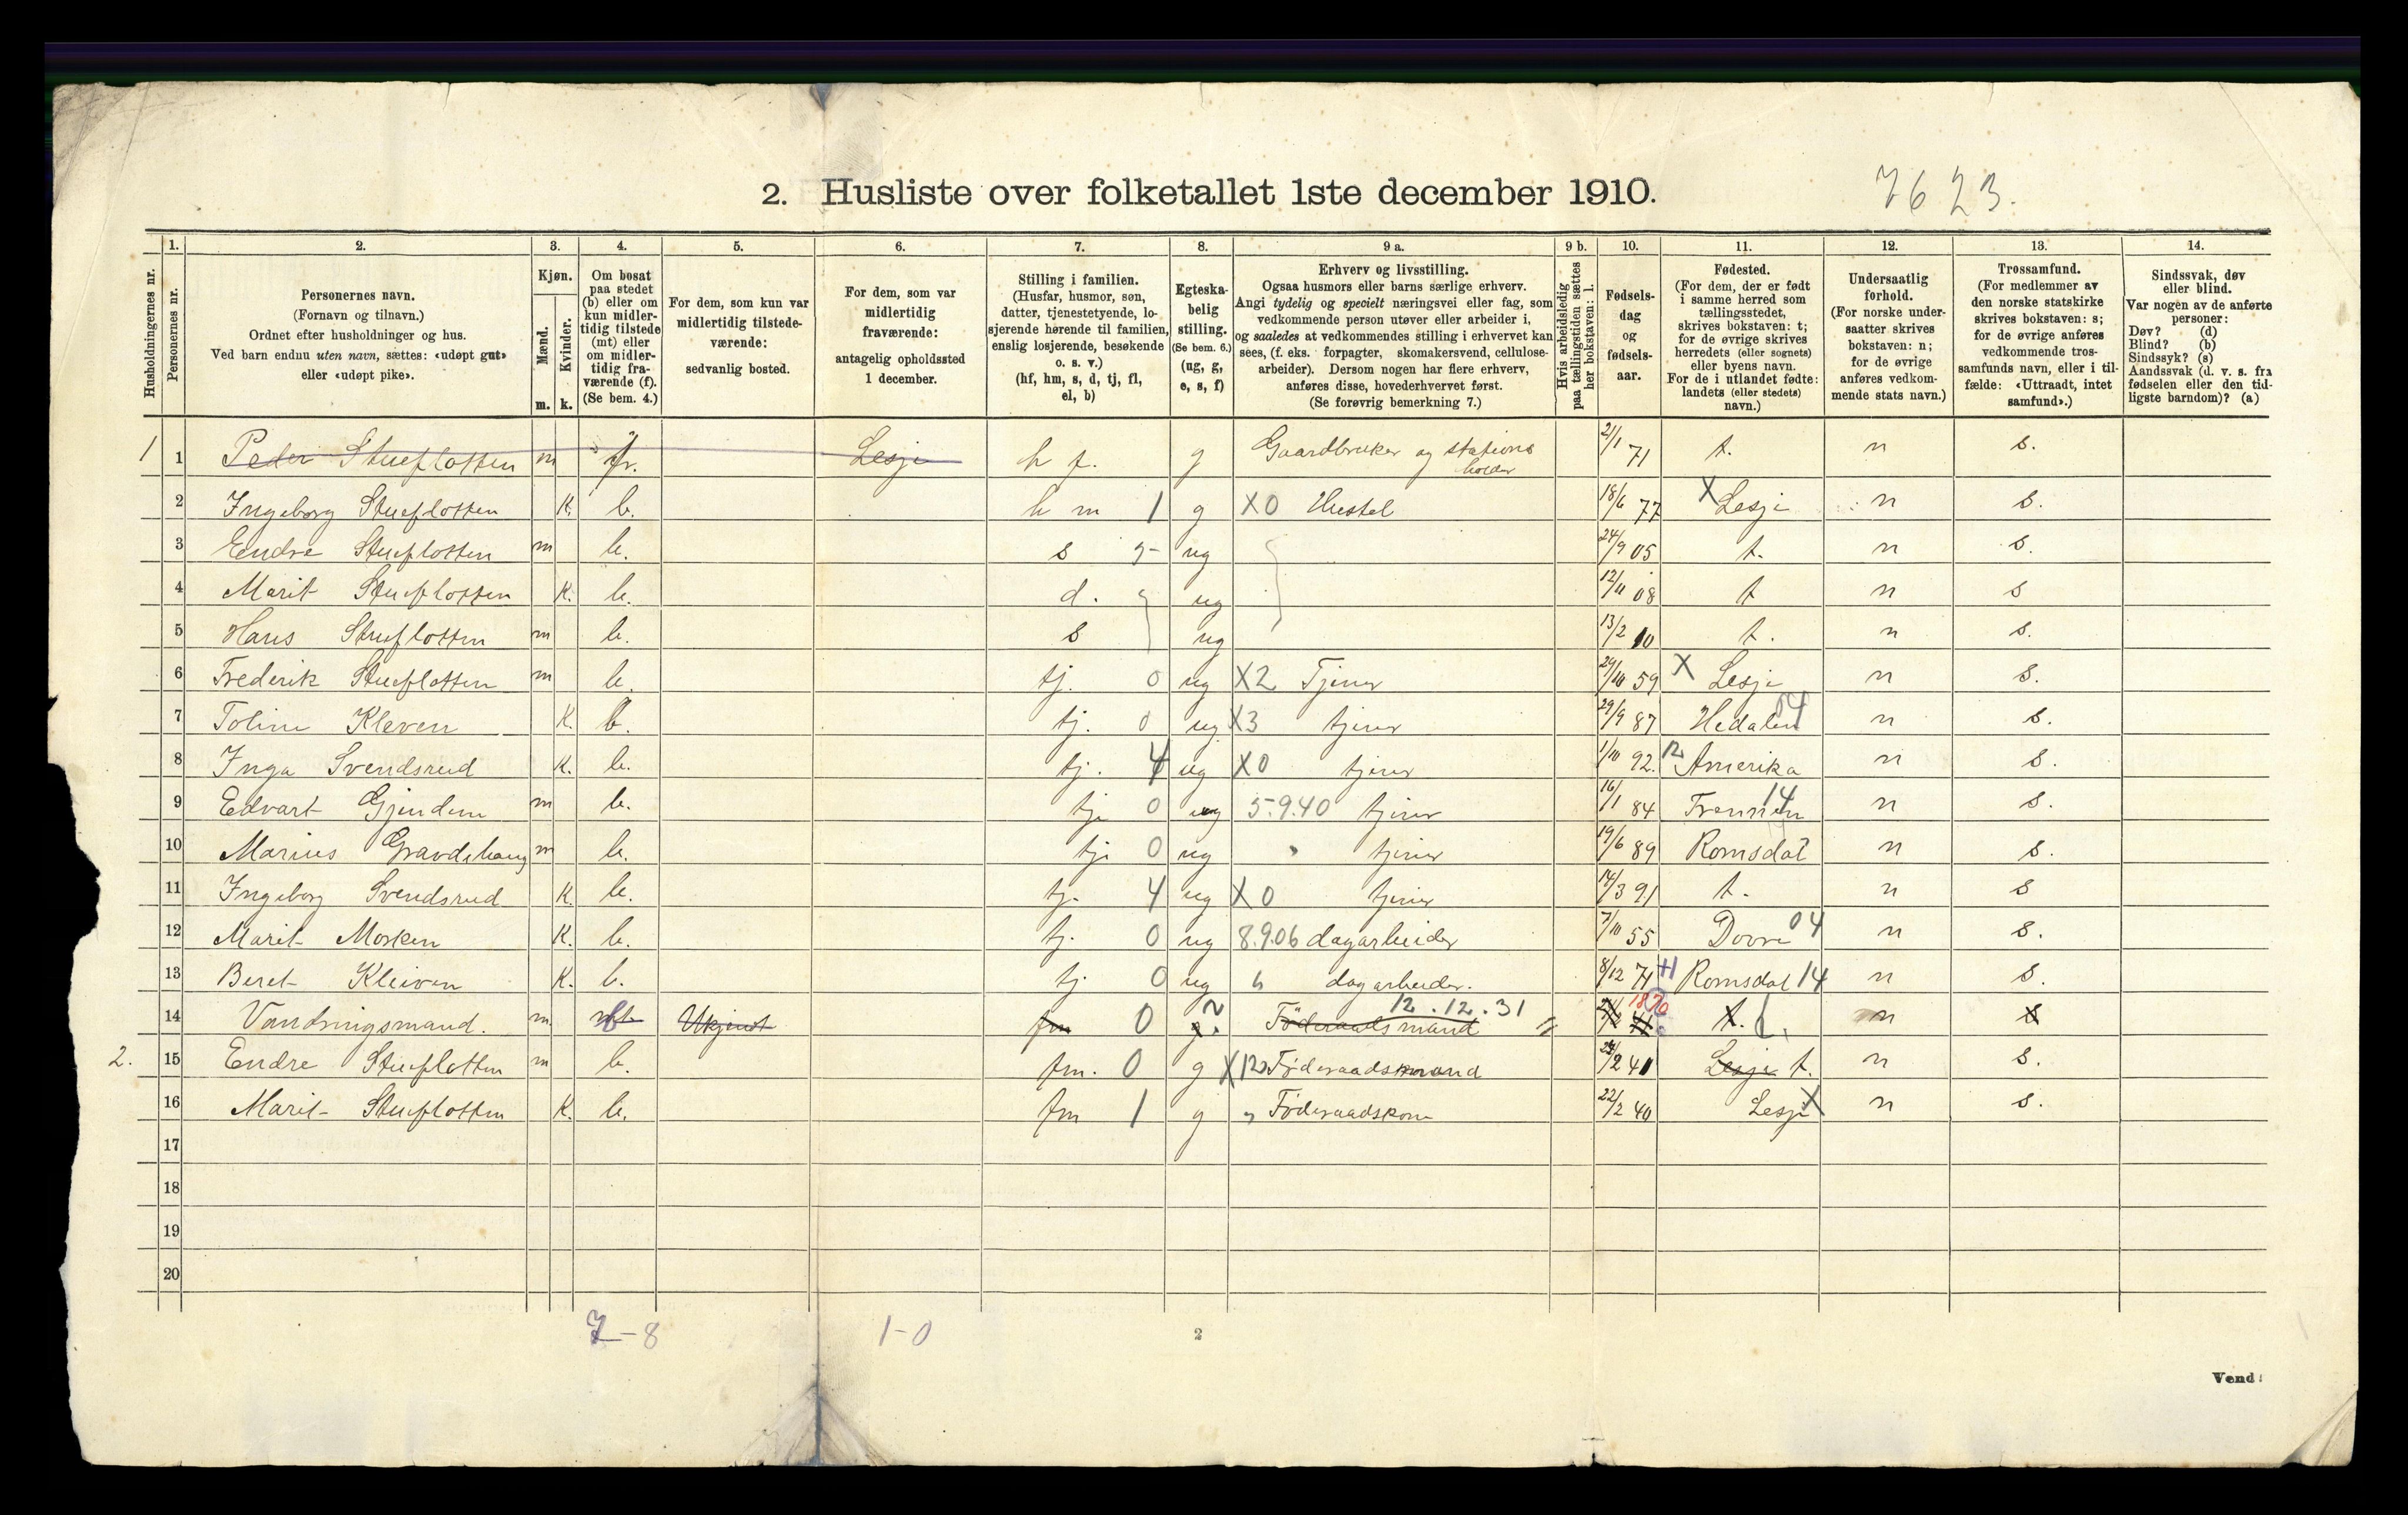 2. Husliste over folketallet 1ste december 1910.
7623.
Husholdningernes nr.
1. Personernes nr.
2. Personernes navn.
(Fornavn og tilnavn.)
Ordnet efter husholdninger og hus.
Ved barn endnu uten navn, sættes: «udøpt gut»
eller «udøpt pike».
3. Kjøn.
Mænd. m.
Kvinder. k.
4. Om bosat
paa stedet
(b) eller om
kun midler-
tidig tilstede
(mt) eller
om midler-
tidig fra-
værende (f).
(Se bem. 4.)
5. For dem, som kun var
midlertidig tilstede-
værende:
sedvanlig bosted.
6. For dem, som var
midlertidig
fraværende:
antagelig opholdssted
1 december.
7. Stilling i familien.
(Husfar, husmor, søn,
datter, tjenestetyende, lo-
sjerende hørende til familien,
enslig losjerende, besøkende
o. s. v.)
(hf, hm, s, d, tj, fl,
el, b)
8. Egteska-
belig
stilling.
(Se bem. 6.)
(ug, g,
e, s, f)
9 a. Erhverv og livsstilling.
Ogsaa husmors eller barns særlige erhverv.
Angi tydelig og specielt næringsvei eller fag, som
vedkommende person utøver eller arbeider i,
og saaledes at vedkommendes stilling i erhvervet kan
sees, (f. eks. forpagter, skomakersvend, cellulose-
arbeider). Dersom nogen har flere erhverv,
anføres disse, hovederhvervet først.
(Se forøvrig bemerkning 7.)
9 b. Hvis arbeidsledig
paa tællingstiden sættes
her bokstaven: l.
10. Fødsels-
dag
og
fødsels-
aar.
11. Fødested.
(For dem, der er født
i samme herred som
tællingsstedet,
skrives bokstaven: t;
for de øvrige skrives
herredets (eller sognets)
eller byens navn.
For de i utlandet fødte:
landets (eller stedets)
navn.)
12. Undersaatlig
forhold.
(For norske under-
saatter skrives
bokstaven: n;
for de øvrige
anføres vedkom-
mende stats navn.)
13. Trossamfund.
(For medlemmer av
den norske statskirke
skrives bokstaven: s;
for de øvrige anføres
vedkommende tros-
samfunds navn, eller i til-
fælde: «Uttraadt, intet
samfund».)
14. Sindssvak, døv
eller blind.
Var nogen av de anførte
personer:
Døv? (d)
Blind? (b)
Sindssyk? (s)
Aandssvak (d. v. s. fra
fødselen eller den tid-
ligste barndom)? (a)
1 1 Peder Stueflotten m fr. Lesje h f. g Gaardbruker og stations holder 21/1 71 t. n s.
2 Ingeborg Stueflotten K. b. h m 1 g X0 Hustel 18/6 77 X Lesje n s.
3 Endre Stueflotten m b. s ug 24/9 05 t. n s.
4 Marit Stueflotten K. b. d. ug 12/11 08 t n s
5 Hans Stueflotten m b. s ug 13/2 10 t. n s.
6 Frederik Stueflotten m b. tj. 0 ug X2 Tjener 29/10 59 X Lesje n s.
7 Toline Kleven K. b. tj. 0 ug X3 tjener 29/9 87 Hedalen 04 n s.
8 Inga Svendsrud K. b. tj. 4 ug X0 tjener 1/10 92. 12 Amerika n s.
9 Edvart Gjendem m b. tj 0 ug 5.9.40 tjener 16/1 84 14 n s.
10 Marius Gravdehaug m b. tj 0 ug tjener 19/6 89 Romsdal n s.
11 Ingeborg Svendsrud K. b. tj. 4 ug X0 tjener 14/3 91 t. n s
12 Marit Mosken K. b. tj. 0 ug 8.9.06 dagarbeider 7/10 55 Dovre 04 n s.
13 Beret Kleiven K. b. tj 0 ug " dagarbeider. 8/12 71 Romsdal 14 n s.
14 Vandringsmand. m. mt Ukjendt fm 0 g. Föderaadsmand 12.12.31 1870 t. n s
2. 15 Endre Stueflotten m b. fm. 0 g X12 Föderaadsmand 24/2 41 Lesje t. n s.
16 Marit Stueflotten K. b. fm 1 g " Föderaadskone 22/2 40 Lesje X n s.
17
18
19
20
7-8 1-0
2
Vend!